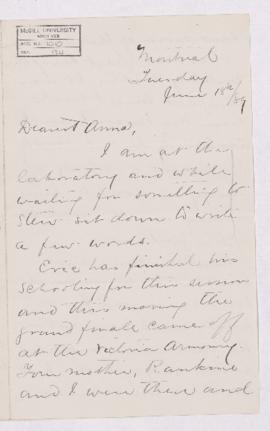 McGILL UNIVERSITY
ARCHIVES
ACC. NO. 1010
REF.
Montreal
Tuesday
June 18th/89
Dearest Anna,
I am at the
laboratory and while
waiting for something to
stew sit down to write
a few words.
Eric has finished his
schooling for this session
and this morning the
grand finale came off
at the Victoria Armoury.
Your mother, Rankine
and I were there and